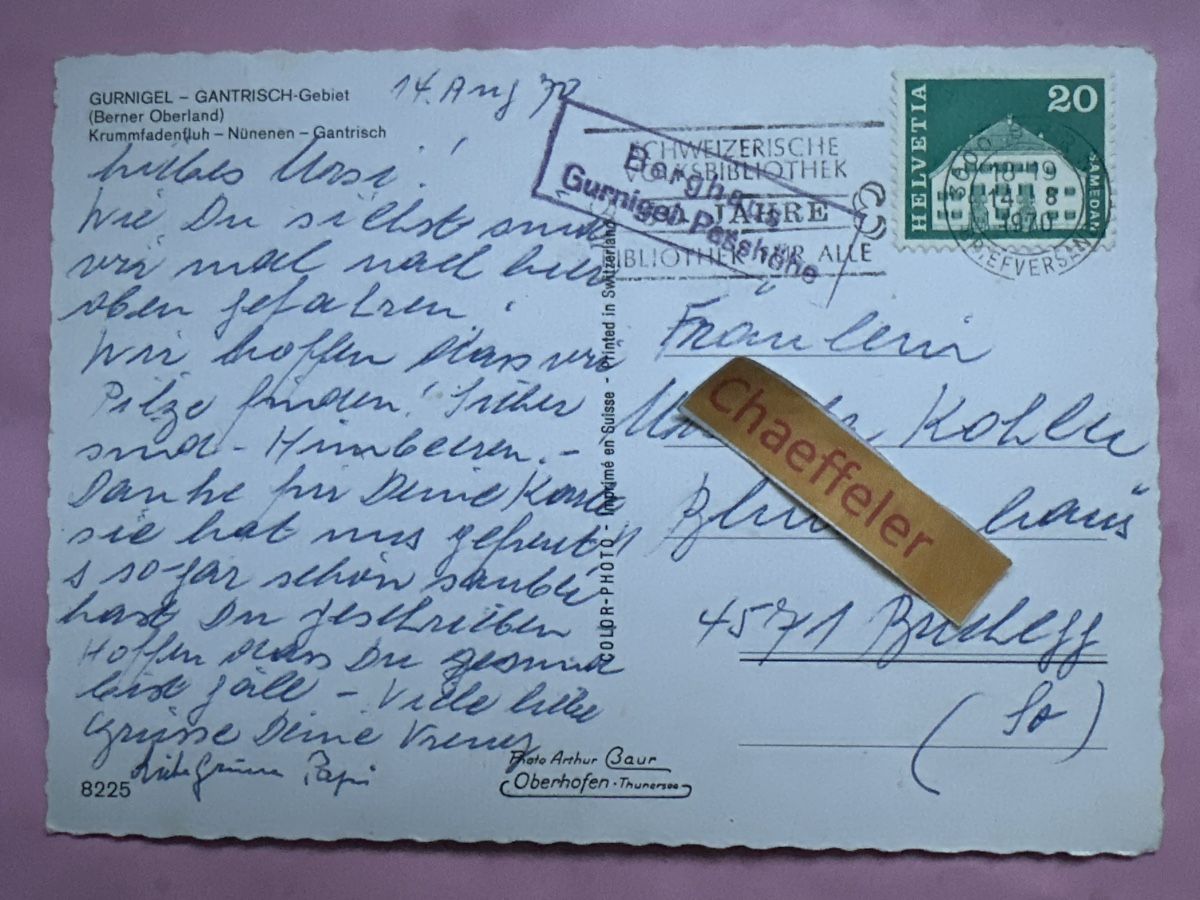 GURNIGEL – GANTRISCH-Gebiet
(Berner Oberland)
Krummfadenfluh – Nünenen – Gantrisch
14. Aug 70
liebes Ursi!
Wie Du siehst sind
wir mal nach hier
oben gefahren!
Wir hoffen dass wir
Pilze finden! Sicher
sind - Himbeeren. -
Danke für Deine Karte
sie hat uns gefreut
so-gar schön sauber
hast Du geschrieben
Hoffen dass Du gesund
bist gäll - Viele liebe
Grüsse Deine Vreney
Liebe Grüsse Papi
8225
Photo Arthur Baur
Oberhofen - Thunersee
COLOR-PHOTO - Imprimé en Suisse - Printed in Switzerland
Berghaus
Gurnigel Passhöhe
SCHWEIZERISCHE
VOLKSBIBLIOTHEK
JAHRE
BIBLIOTHEK FÜR ALLE
HELVETIA
20
SAMEDAN
18-19
14. 8
1970
BRIEFVERSAND
Fräulein
Kohler
Chaeffeler
haus
4571
(So)